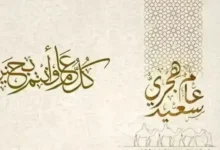 عام هجري
سعيد
كل عام وأنتم بخير